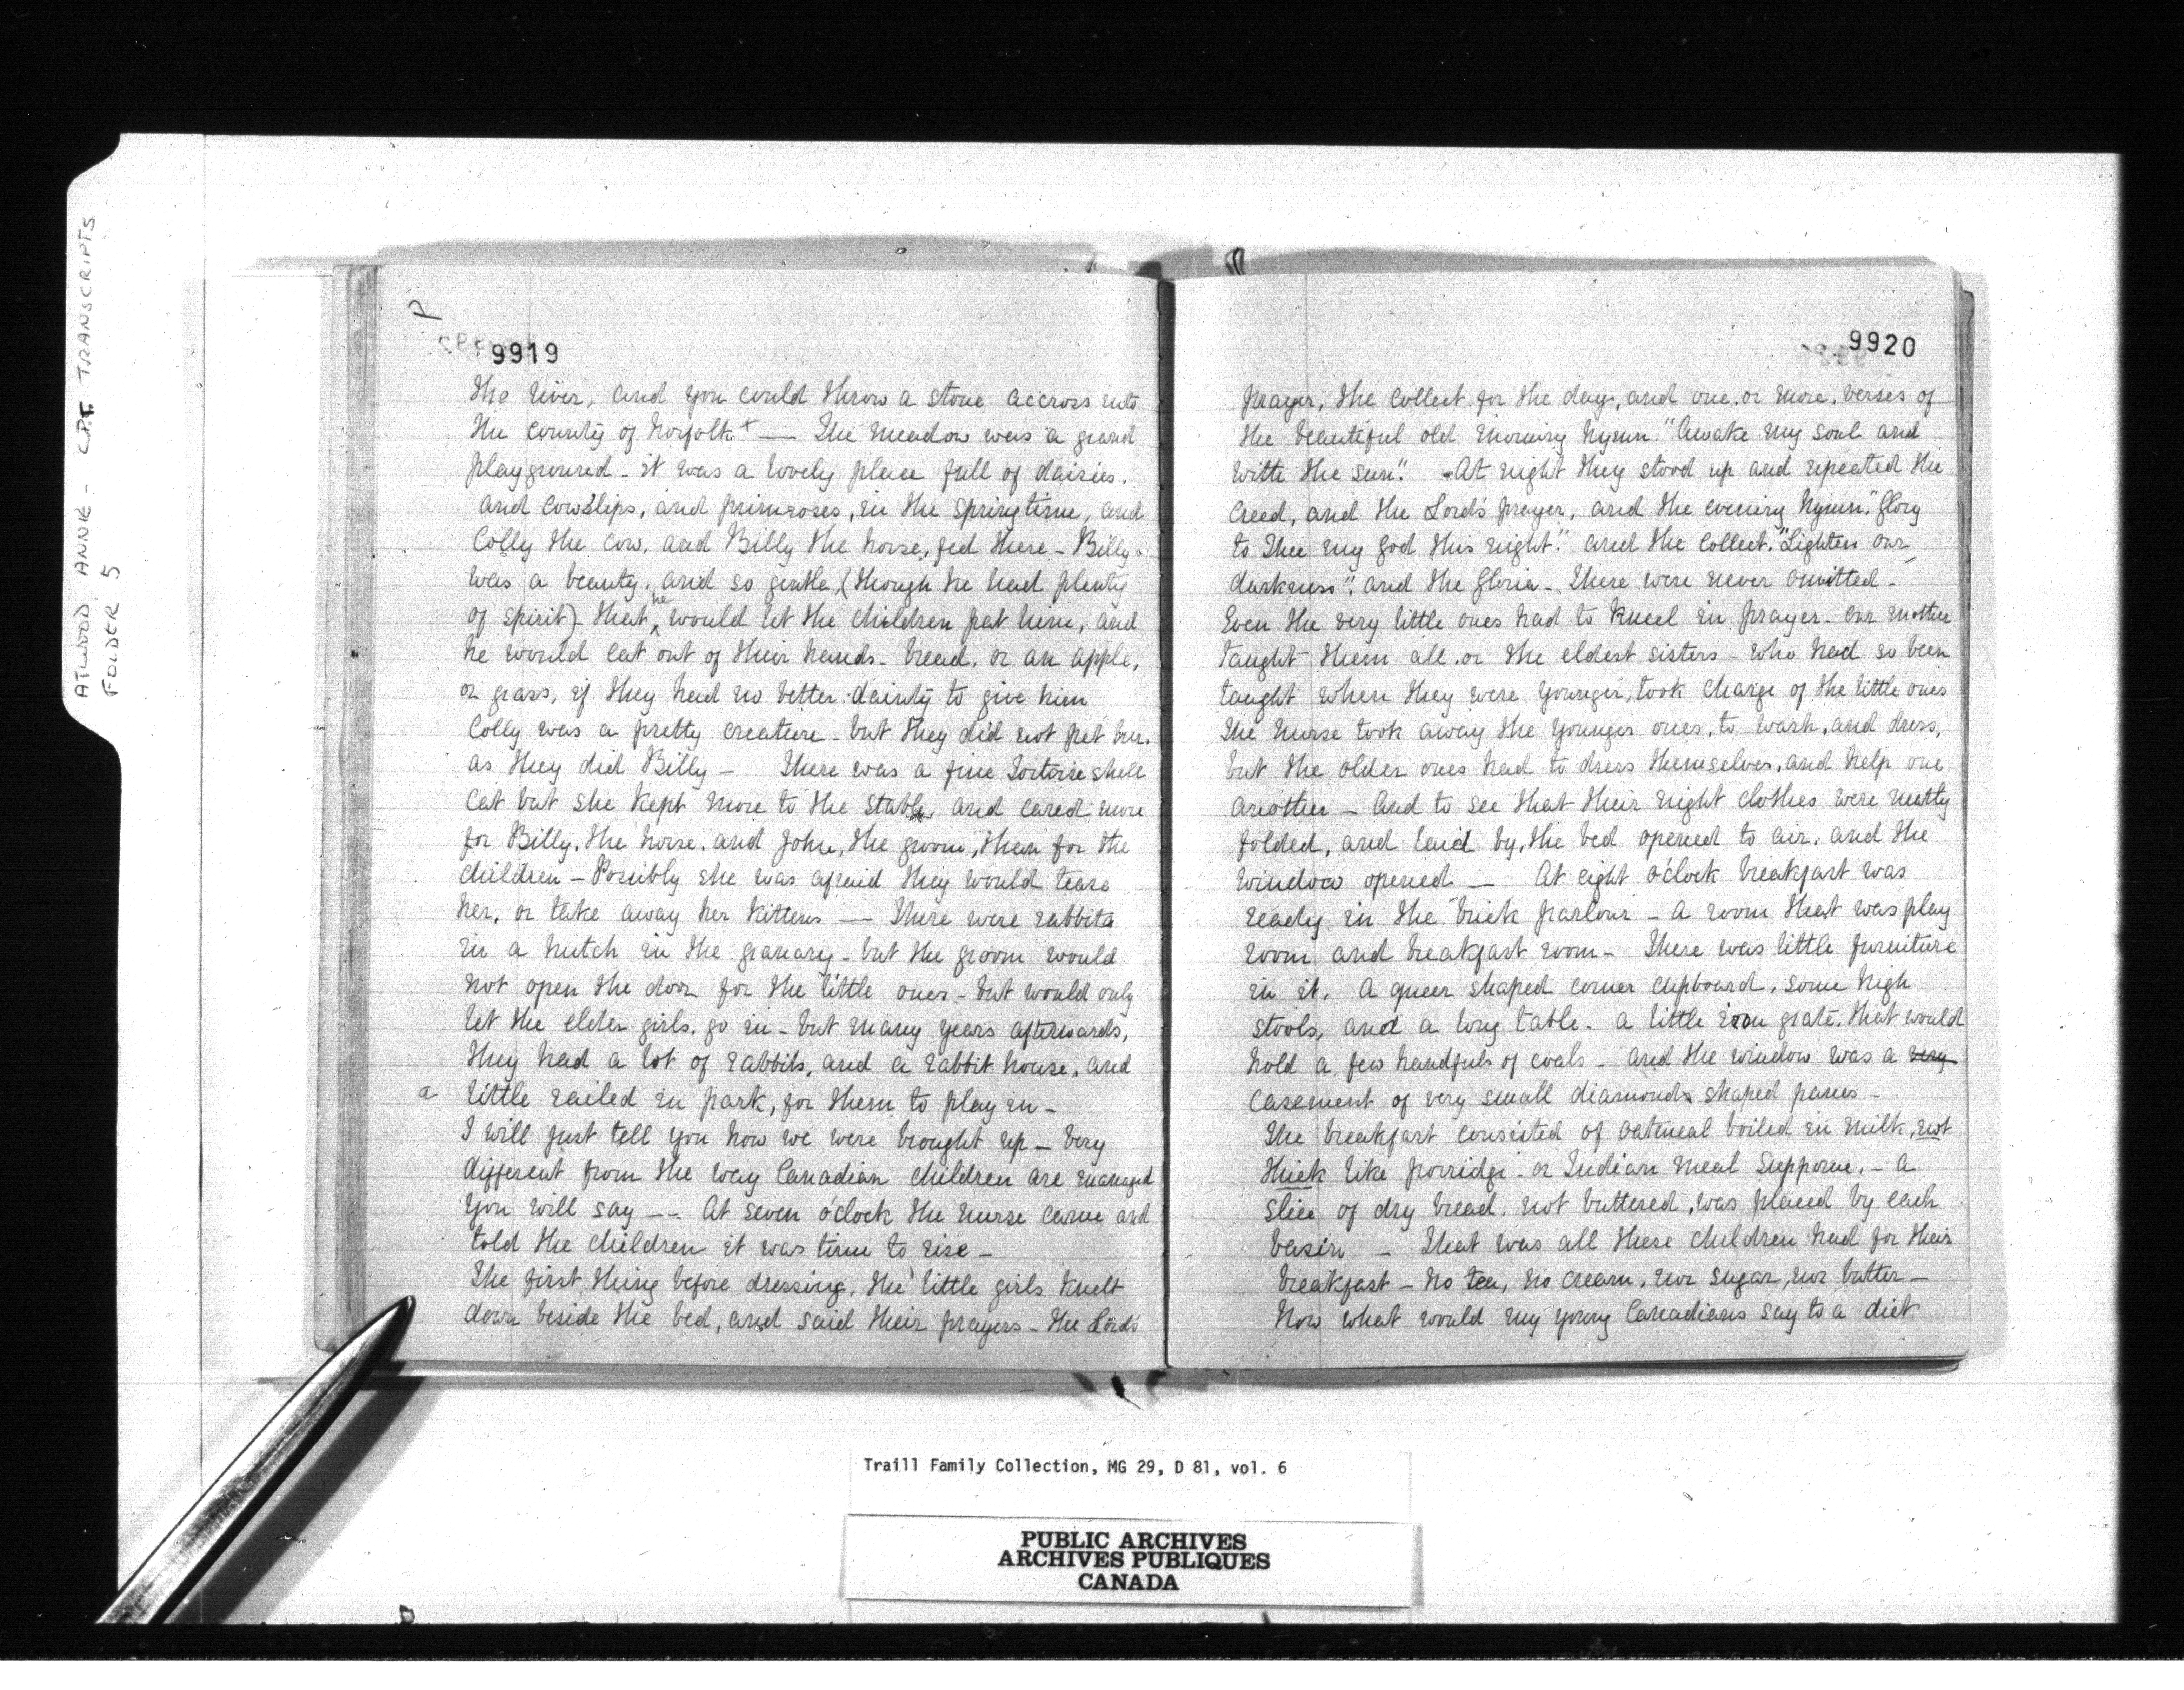 ATWOOD, ANNIE - C.P.T. TRANSCRIPTS
FOLDER 5
9919
the river, and you could throw a stone accross into
the county of Norfolk + — The meadow was a grand
playground - it was a lovely place full of dairies,
and cowslips, and primroses, in the spring time, and
Colly the cow, and Billy the horse, fed there - Billy
was a beauty, and so gentle, (though he had plenty
of spirit) - that he would let the children pat him, and
he would eat out of their hands - bread, or an apple,
or grass, if they had no better dainty to give him
Colly was a pretty creature - but they did not pet her,
as they did Billy - There was a fine Tortoise shell
cat but she kept more to the stable, and cared more
for Billy, the horse, and John, the groom, than for the
children - Possibly she was afraid they would tease
her, or take away her kittens — There were rabbits
in a hutch in the granary - but the groom would
not open the door for the little ones - but would only
let the elder girls, go in - but many years afterwards,
they had a lot of rabbits, and a rabbit house, and
a little railed in park, for them to play in -
I will just tell you how we were brought up - very
different from the way Canadian children are managed
you will say -- At seven o'clock the nurse came and
told the children it was time to rise -
The first thing before dressing, the little girls knelt
down beside the bed, and said their prayers - the Lord's
9920
prayer, the collect for the day, and one, or more, verses of
the beautiful old morning hymn. "Awake my soul and
with the sun". - At night they stood up and repeated the
Creed, and the Lord's prayer, and the evening hymn, "Glory
to Thee my God this night." and the collect, "Lighten our
darkness", and the Gloria - These were never omitted -
Even the very little ones had to kneel in prayer. Our mother
taught them all, or the eldest sisters - who had so been
taught when they were younger, took charge of the little ones
The nurse took away the younger ones, to wash, and dress,
but the older ones had to dress themselves, and help one
another - and to see that their night clothes were neatly
folded, and laid by, the bed opened to air, and the
window opened - At eight o'clock breakfast was
ready in the brick parlour - a room that was play
room and breakfast room - There was little furniture
in it. A queer shaped corner cupboard, some high
stools, and a long table - a little iron grate, that would
hold a few handfuls of coals - and the window was a very
casement of very small diamonds shaped panes -
The breakfast consisted of oatmeal boiled in milk, not
thick like porridge - or Indian meal Supporne, - A
slice of dry bread, not buttered, was placed by each
basin - That was all these children had for their
breakfast - no tea, no cream, nor sugar, nor butter -
Now what would my young Canadians say to a diet
Traill Family Collection, MG 29, D 81, vol. 6
PUBLIC ARCHIVES
ARCHIVES PUBLIQUES
CANADA